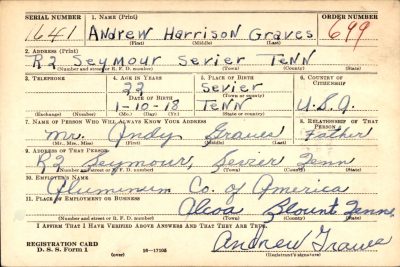 SERIAL NUMBER 1. NAME (Print) ORDER NUMBER
1641 Andrew Harrison Graves 699
(First) (Middle) (Last)
2. ADDRESS (Print)
R2 Seymour Sevier Tenn
(Number and street or R. F. D. number) (Town) (County) (State)
3. TELEPHONE 4. AGE IN YEARS 5. PLACE OF BIRTH 6. COUNTRY OF CITIZENSHIP
22 Sevier
DATE OF BIRTH (Town or county)
1-10-18 Tenn U.S.A.
(Exchange) (Number) (Mo.) (Day) (Yr.) (State or country)
7. NAME OF PERSON WHO WILL ALWAYS KNOW YOUR ADDRESS 8. RELATIONSHIP OF THAT PERSON
Mr. Andy Graves Father
(Mr., Mrs., Miss) (First) (Middle) (Last)
9. ADDRESS OF THAT PERSON
R2 Seymour, Sevier Tenn
(Number and street or R. F. D. number) (Town) (County) (State)
10. EMPLOYER'S NAME
Aluminum Co. of America
11. PLACE OF EMPLOYMENT OR BUSINESS
Alcoa Blount Tenn
(Number and street or R. F. D. number) (Town) (County) (State)
I AFFIRM THAT I HAVE VERIFIED ABOVE ANSWERS AND THAT THEY ARE TRUE.
REGISTRATION CARD
D. S. S. Form 1 16—17105 Andrew Graves
(over) (Registrant's signature)